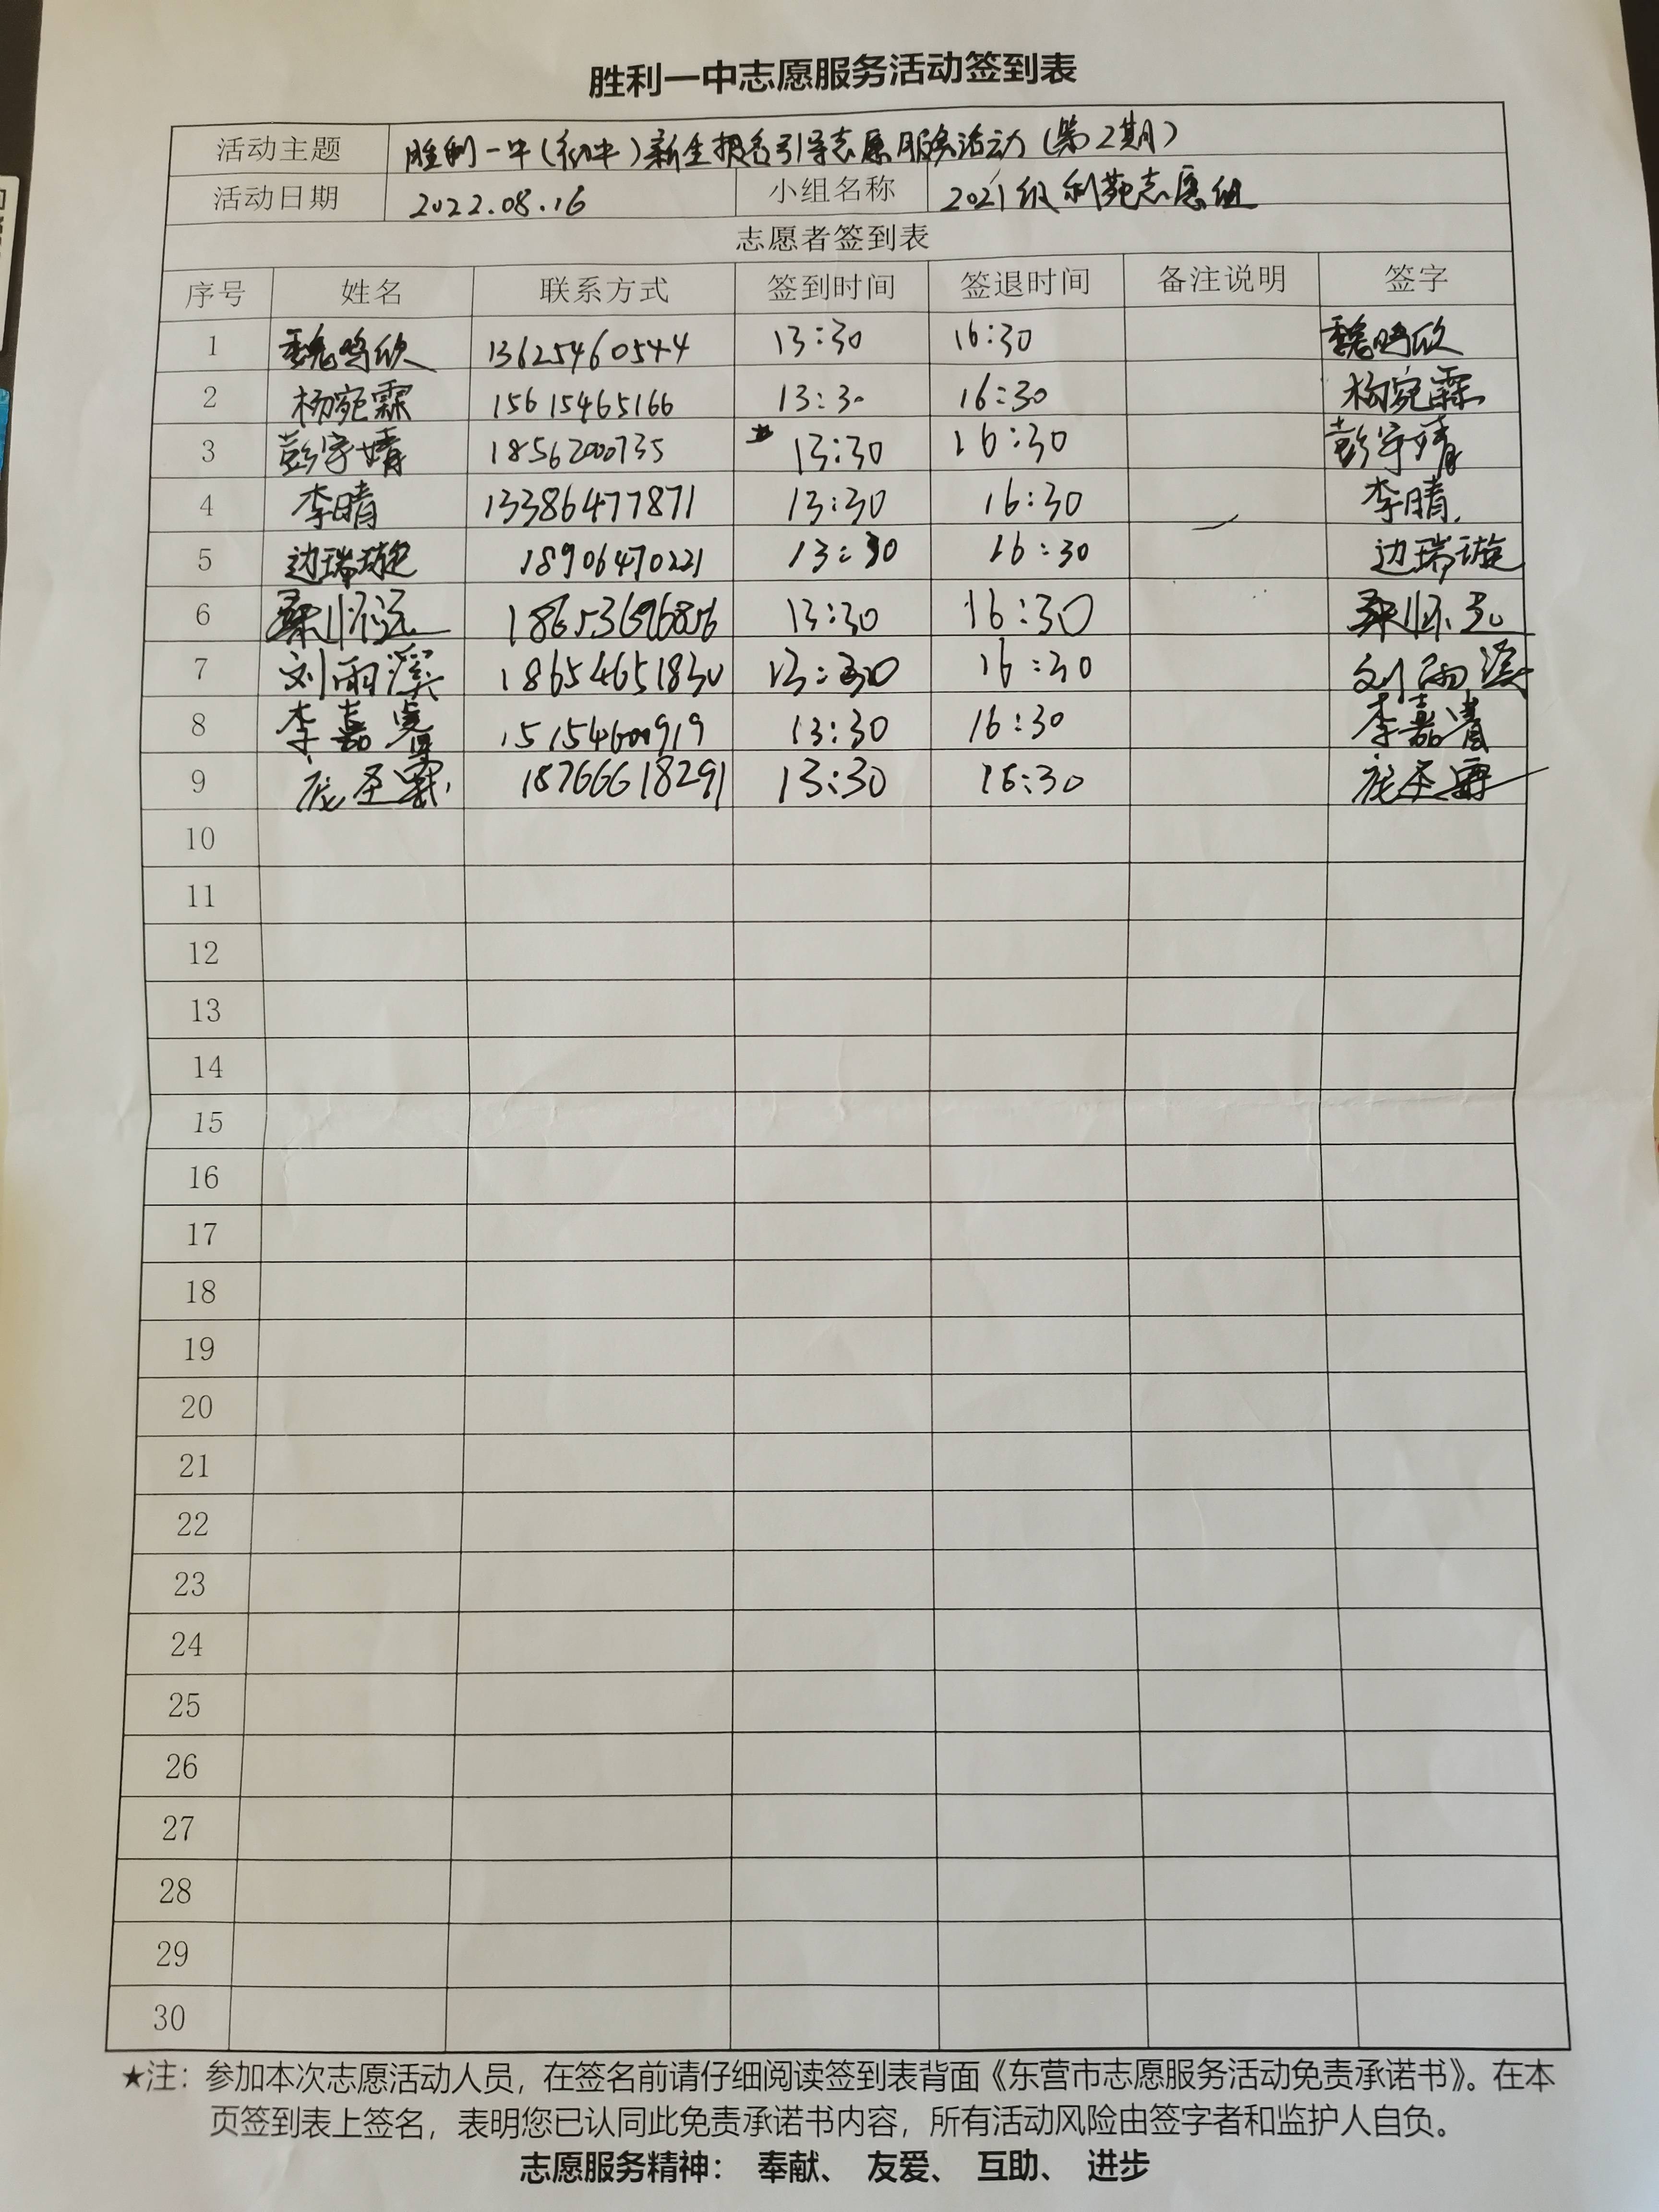 胜利一中志愿服务活动签到表
活动主题 胜利一中(初中)新生报名引导志愿服务活动(第2期)
活动日期 2022.08.16 小组名称 2021级利苑志愿组
志愿者签到表
序号 姓名 联系方式 签到时间 签退时间 备注说明 签字
1 魏鸣欣 13625460544 13:30 16:30 魏鸣欣
2 杨宛霖 15615465166 13:30 16:30 杨宛霖
3 彭宇婧 18562000735 13:30 16:30 彭宇婧
4 李晴 13386477871 13:30 16:30 李晴
5 边瑞璇 18906470221 13:30 16:30 边瑞璇
6 13:30 16:30
7 刘雨溪 18654651830 13:30 16:30 刘雨溪
8 李嘉睿 15154600919 13:30 16:30 李嘉睿
9 18766618291 13:30 16:30
10
11
12
13
14
15
16
17
18
19
20
21
22
23
24
25
26
27
28
29
30
★注：参加本次志愿活动人员，在签名前请仔细阅读签到表背面《东营市志愿服务活动免责承诺书》。在本
页签到表上签名，表明您已认同此免责承诺书内容，所有活动风险由签字者和监护人自负。
志愿服务精神： 奉献、 友爱、 互助、 进步